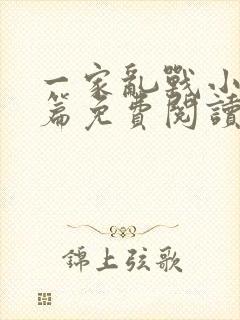 一家亂戰小
篇免費閱讀
錦上弦歌